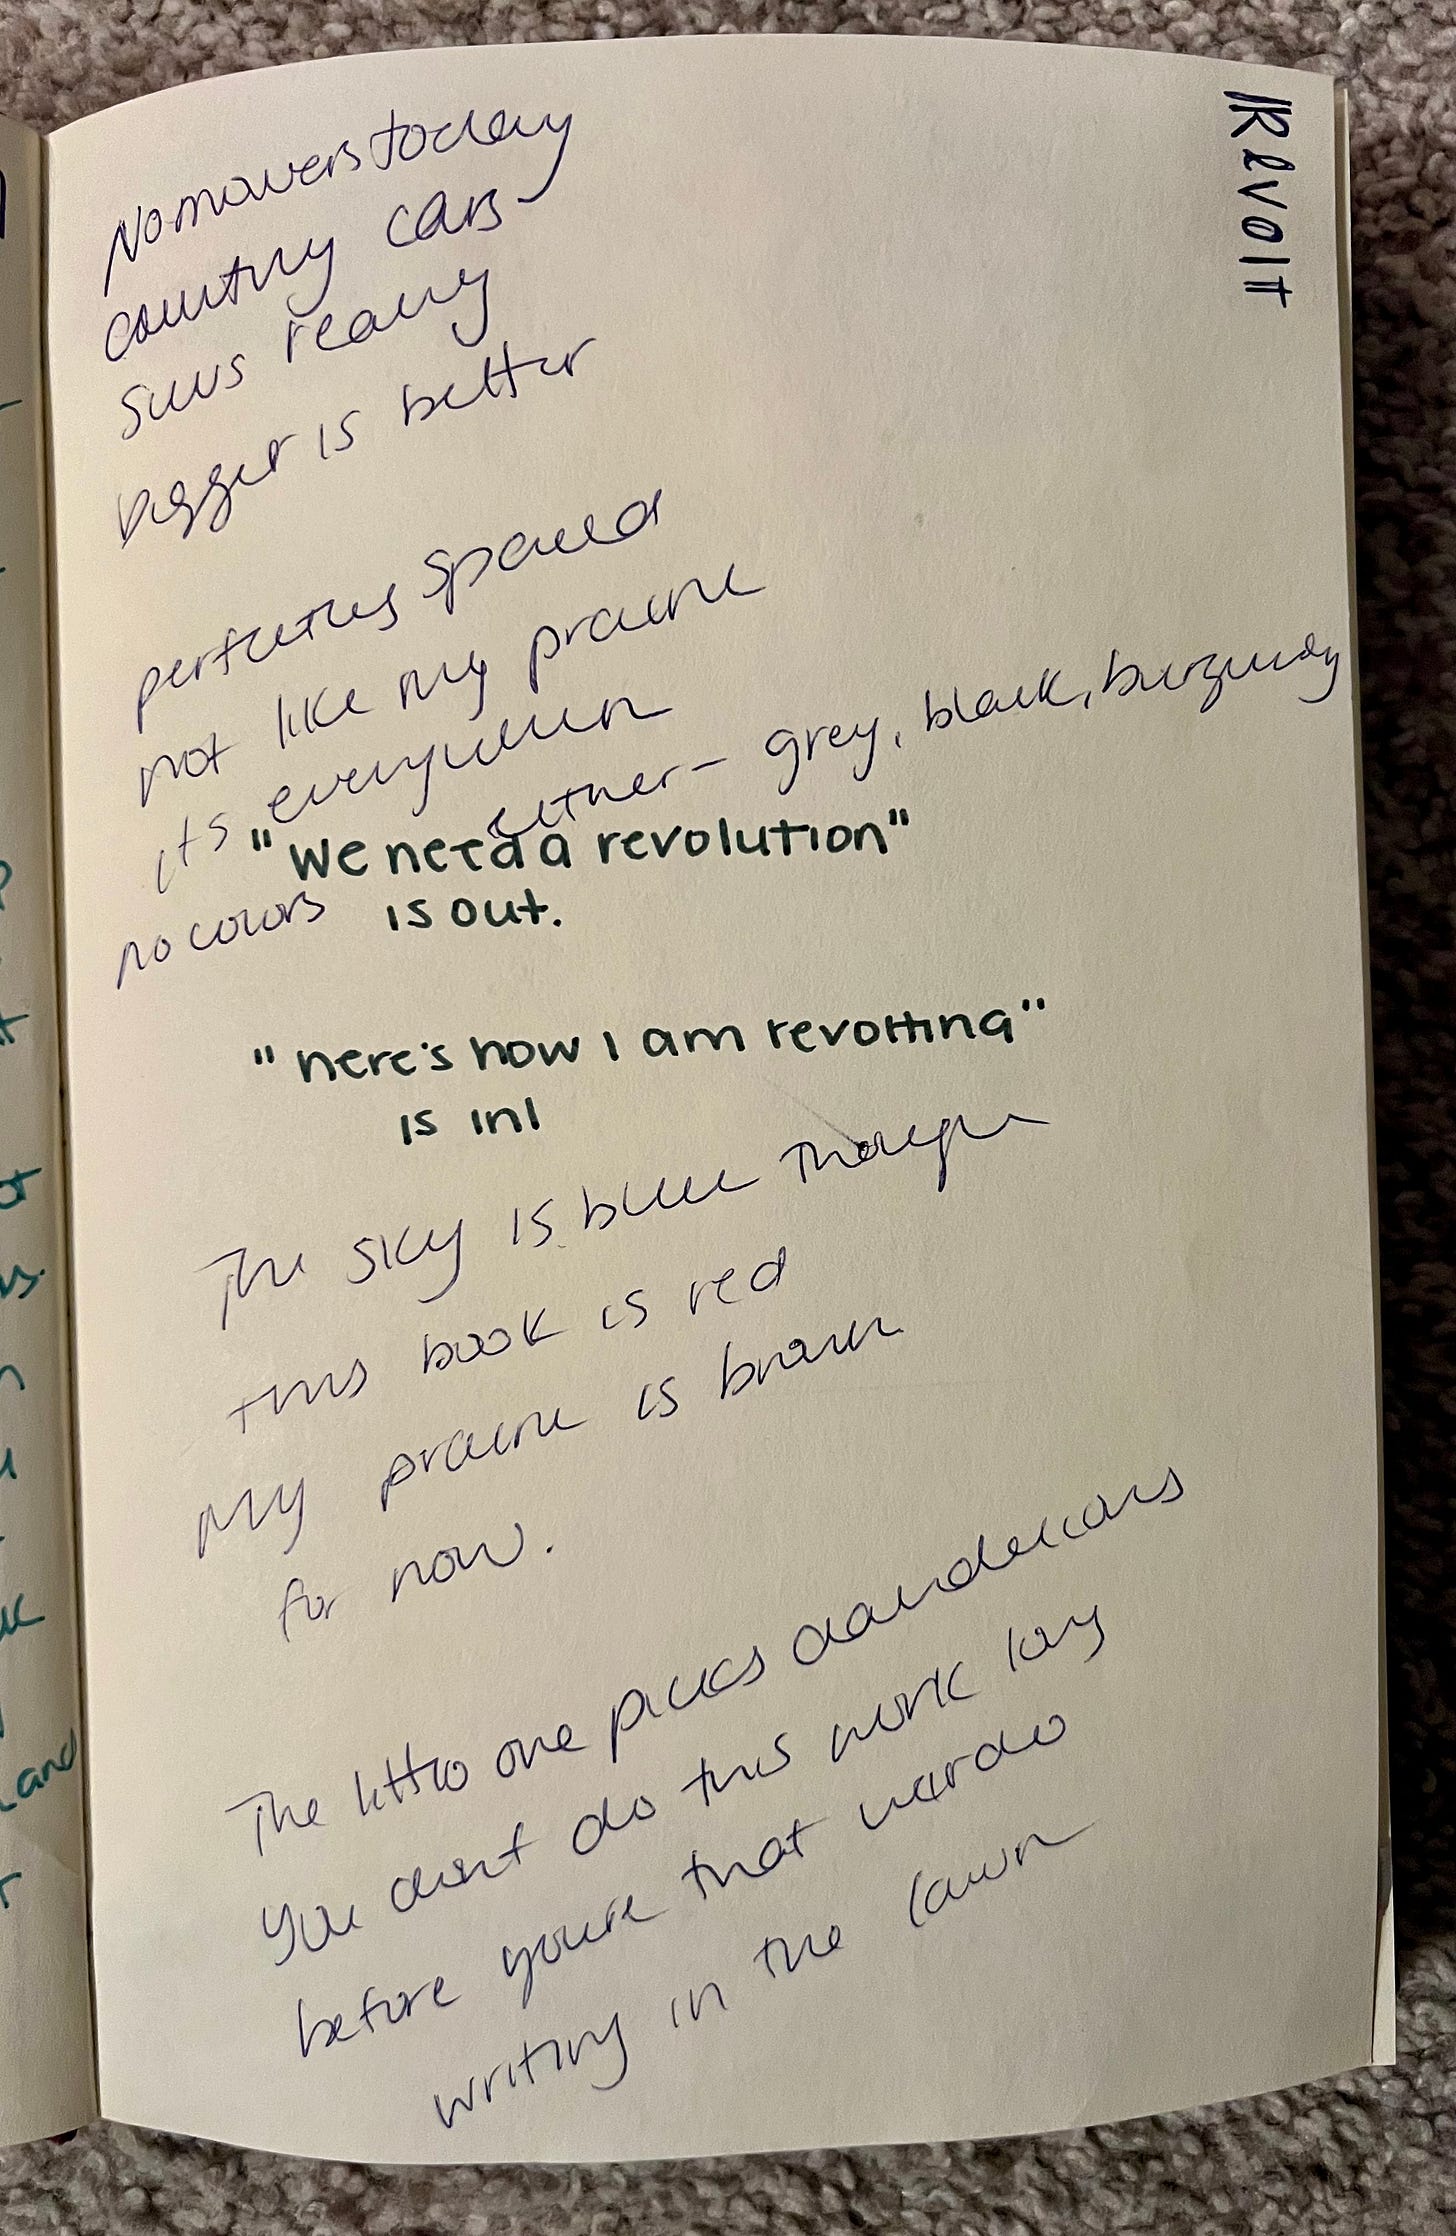 IRevolt
No mowers today
counting cars
suvs really
bigger is better
perfectly spaced
not like my prairie
its everywhere
no colors either - grey, black, burgundy
"We need a revolution"
is out.
"here's how I am revolting"
is in!
The sky is blue though
this book is red
My prairie is brown
for now.
The little one picks dandelions
You dont do this work long
before you're that weirdo
writing in the lawn
and